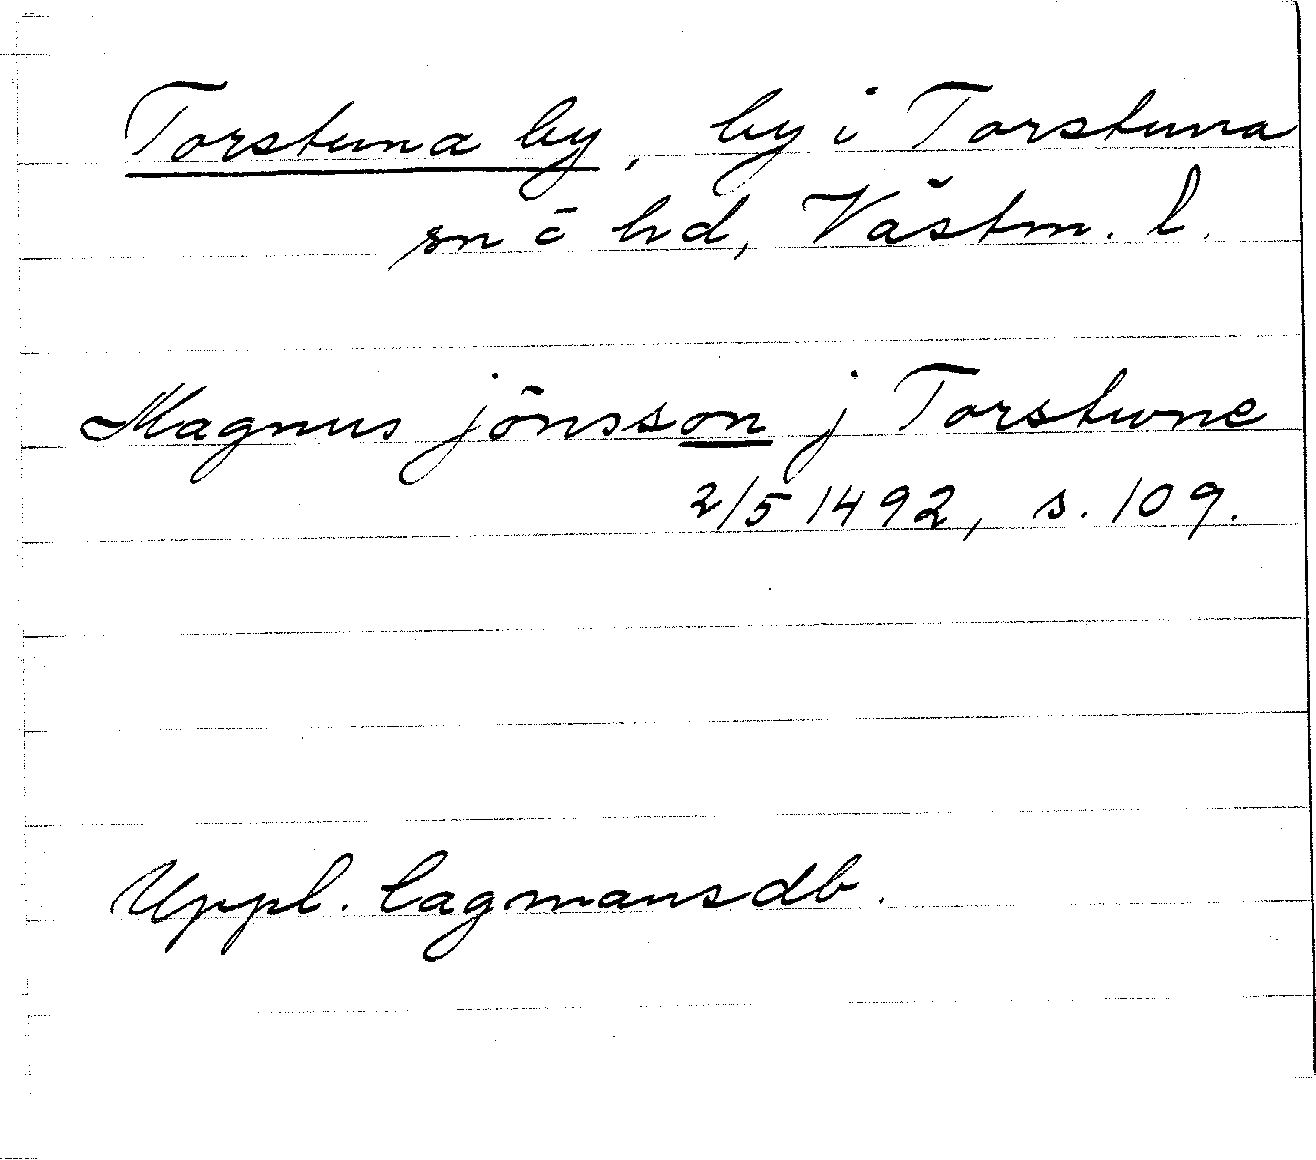 Torstuna by, by i Torstuna
sn o hd, Västm. l.
Magnus jönsson j Torstwne
2/5 1492, s. 109.
Uppl. lagmansdb.